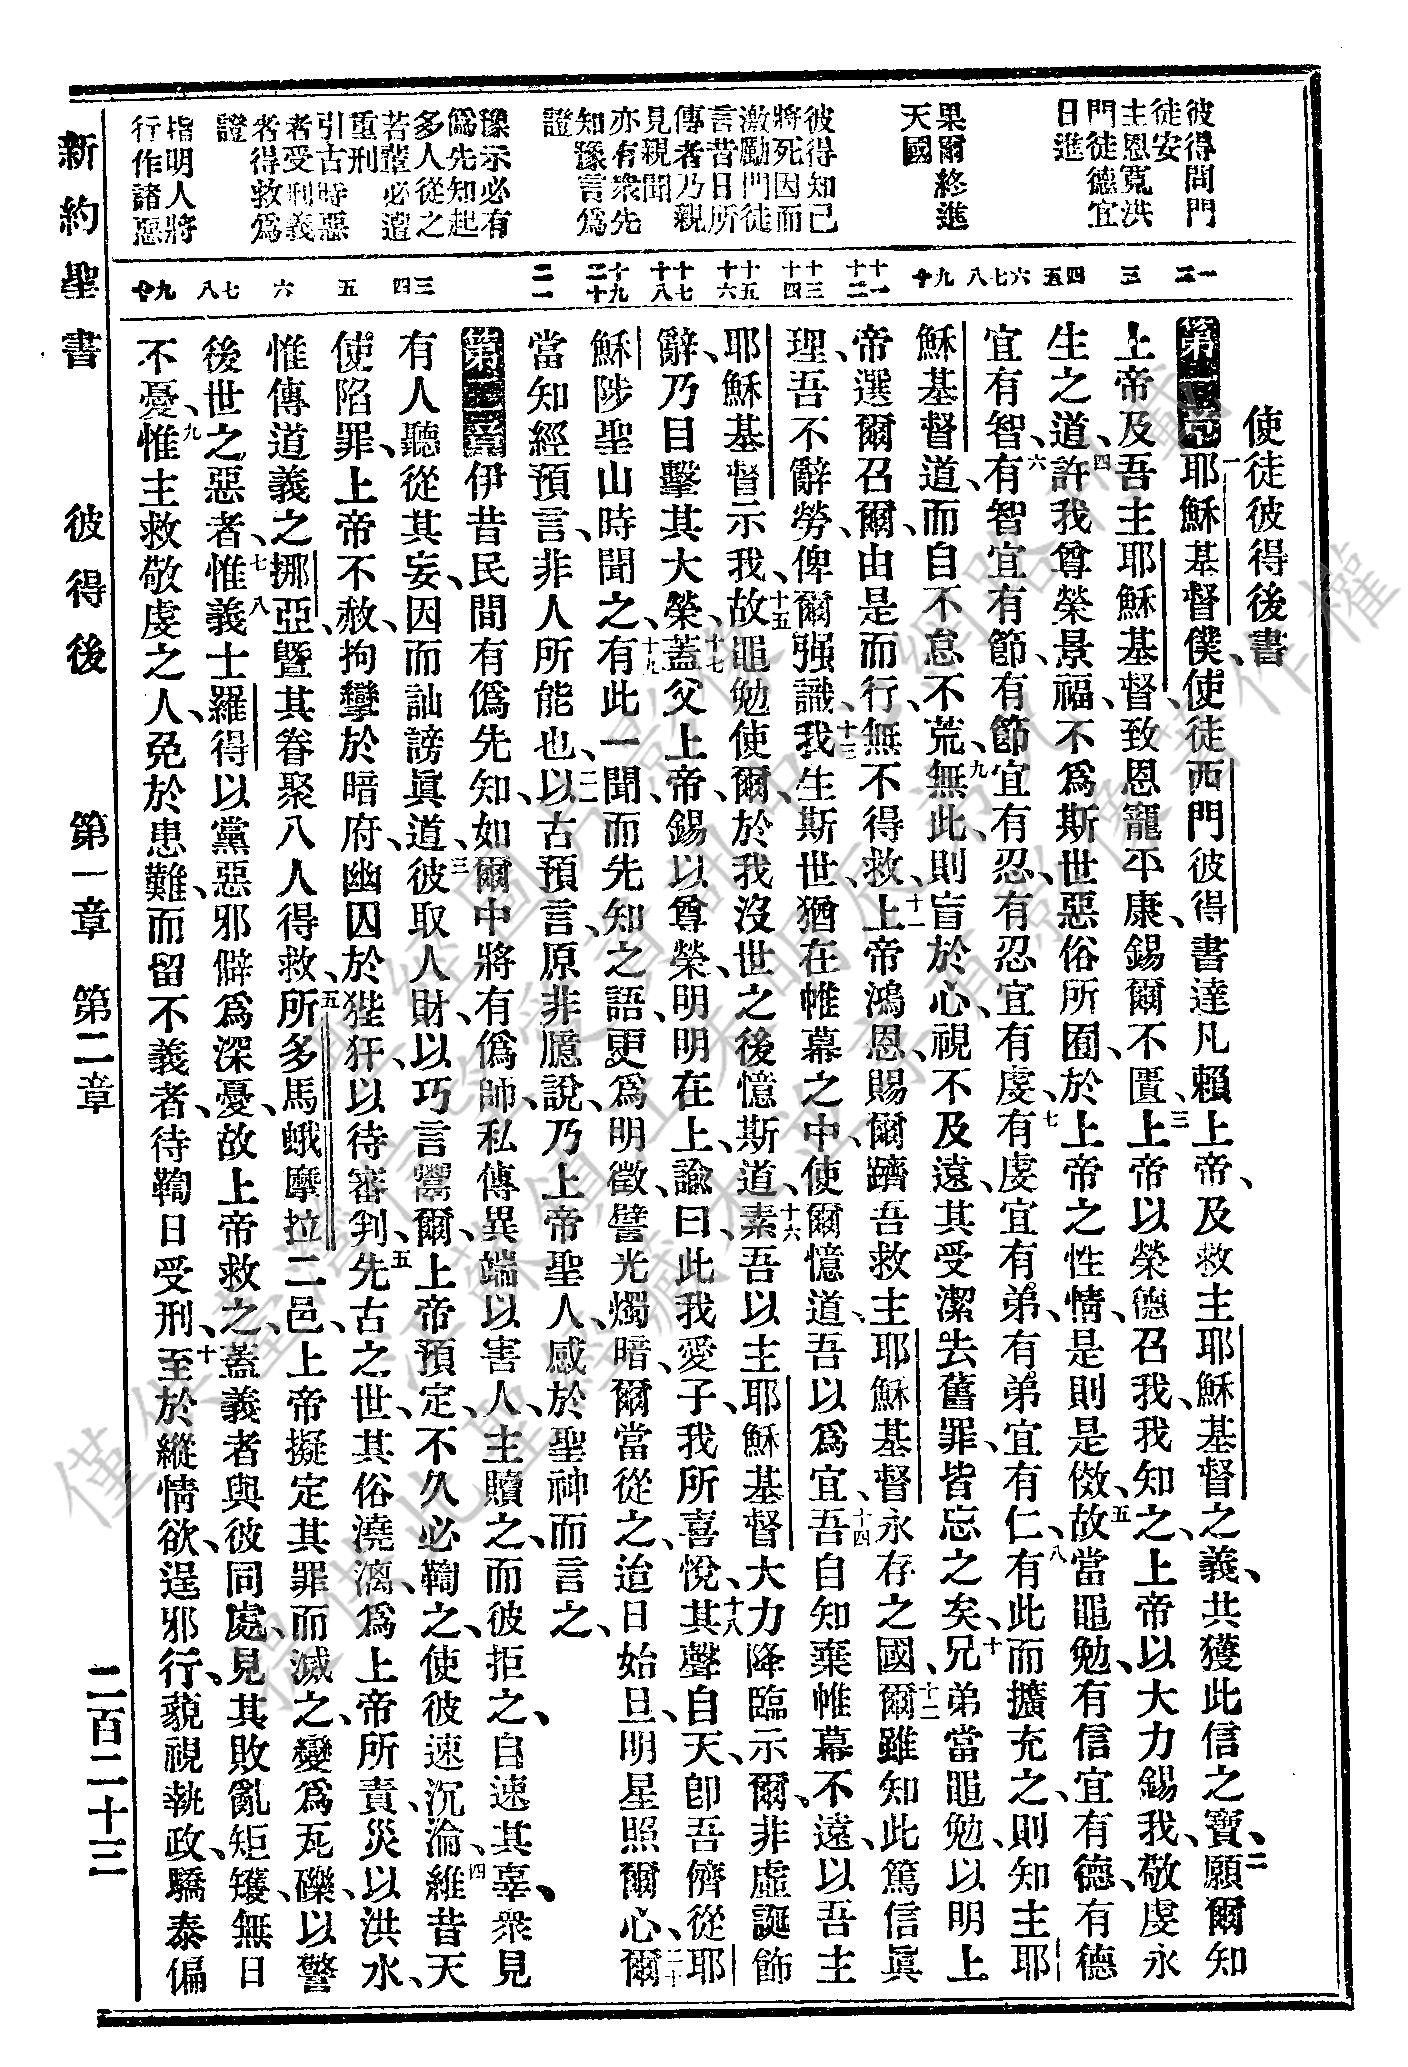 彼得問門
徒安
主恩寬洪
門徒德宜
日進
果爾終進
天國
彼得知己
將死因而
激勵門徒
言昔日所
傳者乃親
見親聞
亦有衆先
知豫言爲
證
豫示必有
僞先知起
多人從之
若輩必遭
重刑
引古時惡
者受刑義
者得救爲
證
指明人將
行作諸惡
使徒彼得後書
第一章 一耶穌基督僕、使徒西門彼得、書達凡賴上帝、及救主耶穌基督之義、共獲此信之寶、二願爾知
上帝及吾主耶穌基督、致恩寵平康、錫爾不匱、三上帝以榮德召我、我知之、上帝以大力錫我、敬虔永
生之道、四許我尊榮景福、不爲斯世惡俗所囿、於上帝之性情、是則是傚、五故當黽勉、有信宜有德、有德
宜有智、六有智宜有節、有節宜有忍、有忍宜有虔、七有虔宜有弟、有弟宜有仁、八有此而擴充之、則知主耶
穌基督道、而自不怠不荒、九無此、則盲於心、視不及遠、其受潔去舊罪、皆忘之矣、十兄弟當黽勉、以明上
帝選爾召爾、由是而行、無不得救、十一上帝鴻恩、賜爾躋吾救主耶穌基督永存之國、十二爾雖知此篤信眞
理、吾不辭勞、俾爾强識、十三我生斯世、猶在帷幕之中、使爾憶道、吾以爲宜、十四吾自知棄帷幕不遠、以吾主
耶穌基督示我、十五故黽勉使爾、於我沒世之後、憶斯道、十六素吾以主耶穌基督大力降臨示爾、非虛誕飾
辭、乃目擊其大榮、十七蓋父上帝、錫以尊榮、明明在上、諭曰、此我愛子、我所喜悅、十八其聲自天、卽吾儕從耶
穌陟聖山時聞之、十九有此一聞、而先知之語、更爲明徵、譬光燭暗、爾當從之、迨日始旦、明星照爾心、二十爾
當知經預言、非人所能也、二一以古預言、原非臆說、乃上帝聖人、感於聖神而言之、
第二章 伊昔民間有僞先知、如爾中將有僞師、私傳異端以害人、主贖之、而彼拒之、自速其辜、衆見
有人聽從其妄、因而訕謗眞道、三彼取人財、以巧言鬻爾、上帝預定、不久必鞫之、使彼速沉淪、四維昔天
使陷罪、上帝不赦、拘攣於暗府、幽囚於狴犴、以待審判、五先古之世、其俗澆漓、爲上帝所責、災以洪水、
惟傳道義之挪亞、曁其眷聚八人得救、所多馬蛾摩拉二邑、上帝擬定其罪而滅之、變爲瓦礫、以警
後世之惡者、七惟義士羅得、以黨惡邪僻爲深憂、故上帝救之、八蓋義者與彼同處、見其敗亂矩矱、無日
不憂、九惟主救敬虔之人、免於患難、而留不義者、待鞫日受刑、十至於縱情欲、逞邪行、藐視執政、驕泰偏
新約聖書 彼得後 第一章 第二章 二百二十三